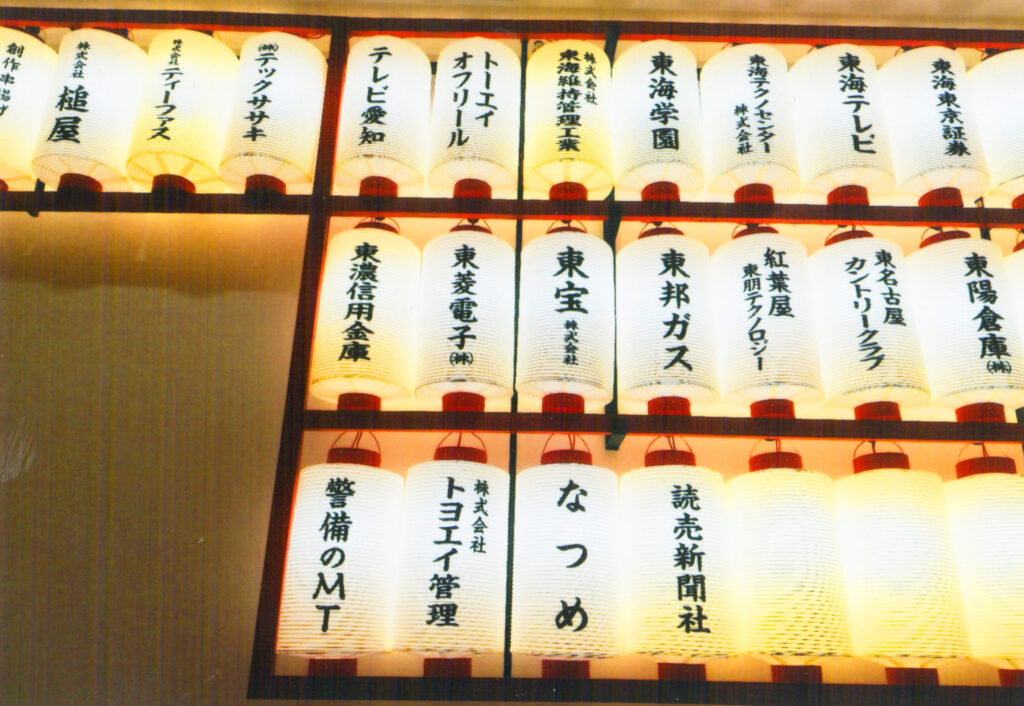 創作串揚げ
株式会社
槌屋
株式会社
ティーファス
㈱テックササキ
テレビ愛知
トーエイ
オフリール
株式会社
東海維持管理工業
東海学園
東海テクノセンター
株式会社
東海テレビ
東海東京証券
東濃信用金庫
東菱電子㈱
東宝株式会社
東邦ガス
紅葉屋
東朋テクノロジー
東名古屋
カントリークラブ
東陽倉庫㈱
警備のMT
株式会社
トヨエイ管理
なつめ
読売新聞社